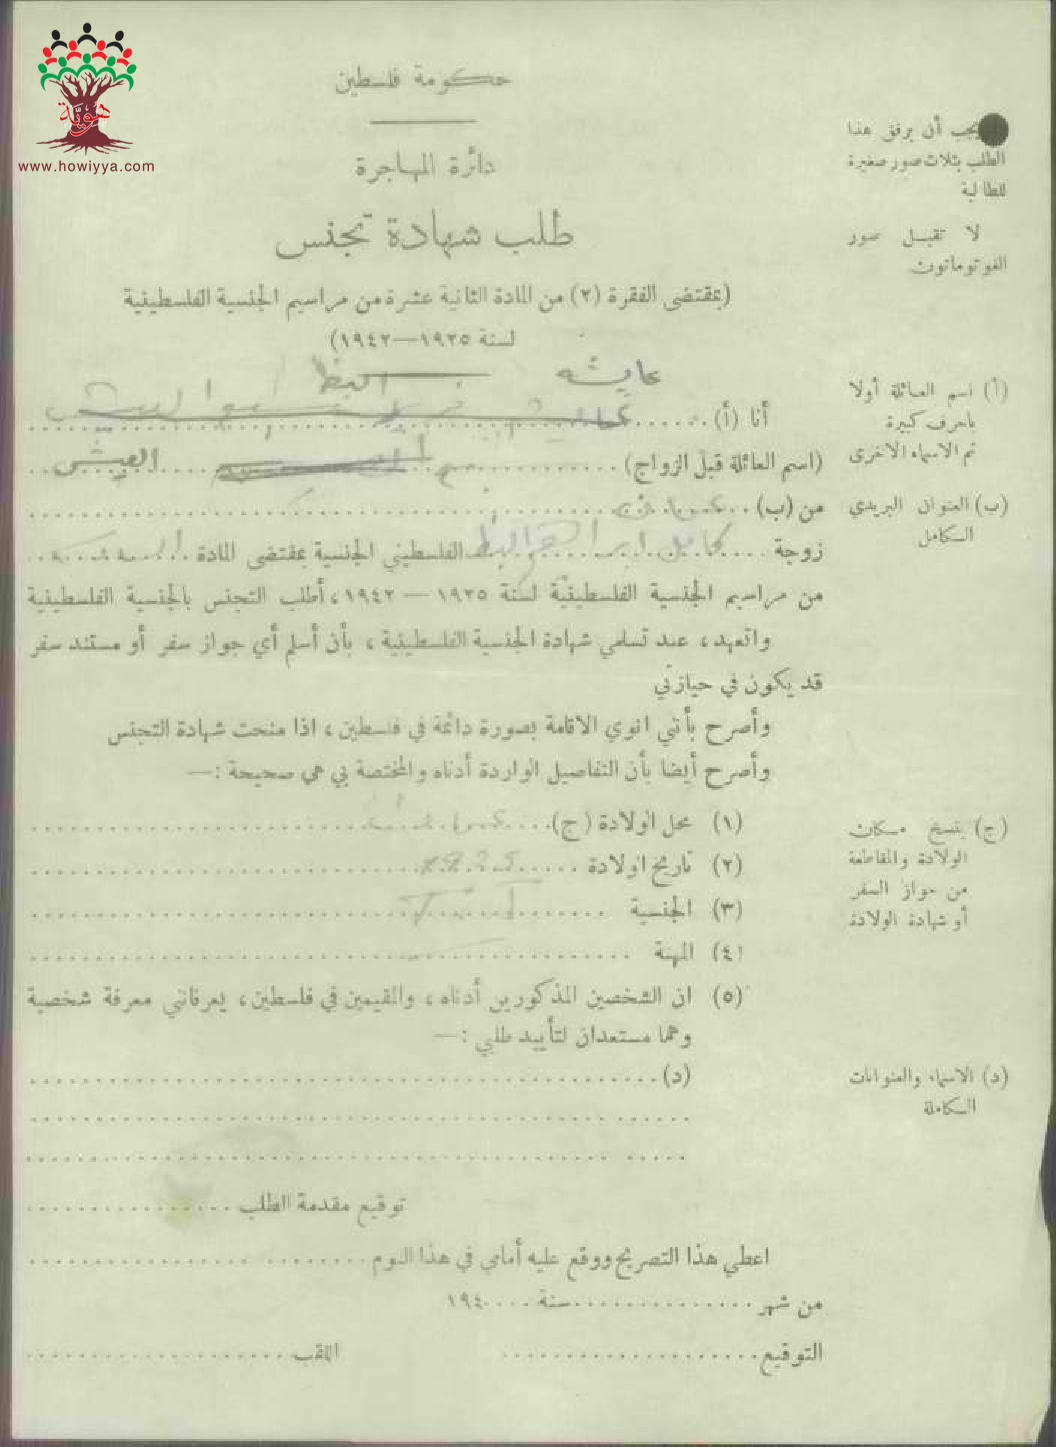 هوية
www.howiyya.com
حكومة فلسطين
دائرة المهاجرة
طلب شهادة تجنس
(بمقتضى الفقرة (٢) من المادة الثانية عشرة من مراسيم الجنسية الفلسطينية
لسنة ١٩٢٥—١٩٤٢)
يجب أن يرفق هذا
الطلب بثلاث صور صغيرة
للطالبة
لا تقبل صور
الفوتوماتون
عايشه البظ
أنا (أ)
(اسم العائلة قبل الزواج) العيش
من (ب)
زوجة كامل ابراهيم البظ الفلسطيني الجنسية بمقتضى المادة
من مراسيم الجنسية الفلسطينية لسنة ١٩٢٥ — ١٩٤٢، أطلب التجنس بالجنسية الفلسطينية
واتعهد، عند تسلمي شهادة الجنسية الفلسطينية، بأن أسلم أي جواز سفر أو مستند سفر
قد يكون في حيازتي
وأصرح بأنني انوي الاقامة بصورة دائمة في فلسطين، اذا منحت شهادة التجنس
وأصرح أيضا بأن التفاصيل الواردة أدناه والمختصة بي هي صحيحة :—
(١) محل الولادة (ج)
(٢) تاريخ الولادة
(٣) الجنسية
(٤) المهنة
(٥) ان الشخصين المذكورين أدناه، والمقيمين في فلسطين، يعرفانني معرفة شخصية
وهما مستعدان لتأييد طلبي :—
(د)
توقيع مقدمة الطلب
اعطي هذا التصريح ووقع عليه أمامي في هذا اليوم
من شهر سنة ١٩٤
التوقيع اللقب
(أ) اسم العائلة أولا
باحرف كبيرة
ثم الاسماء الاخرى
(ب) العنوان البريدي
الكامل
(ج) ينسخ مكان
الولادة والمقاطعة
من جواز السفر
أو شهادة الولادة
(د) الاسماء والعنوانات
الكاملة